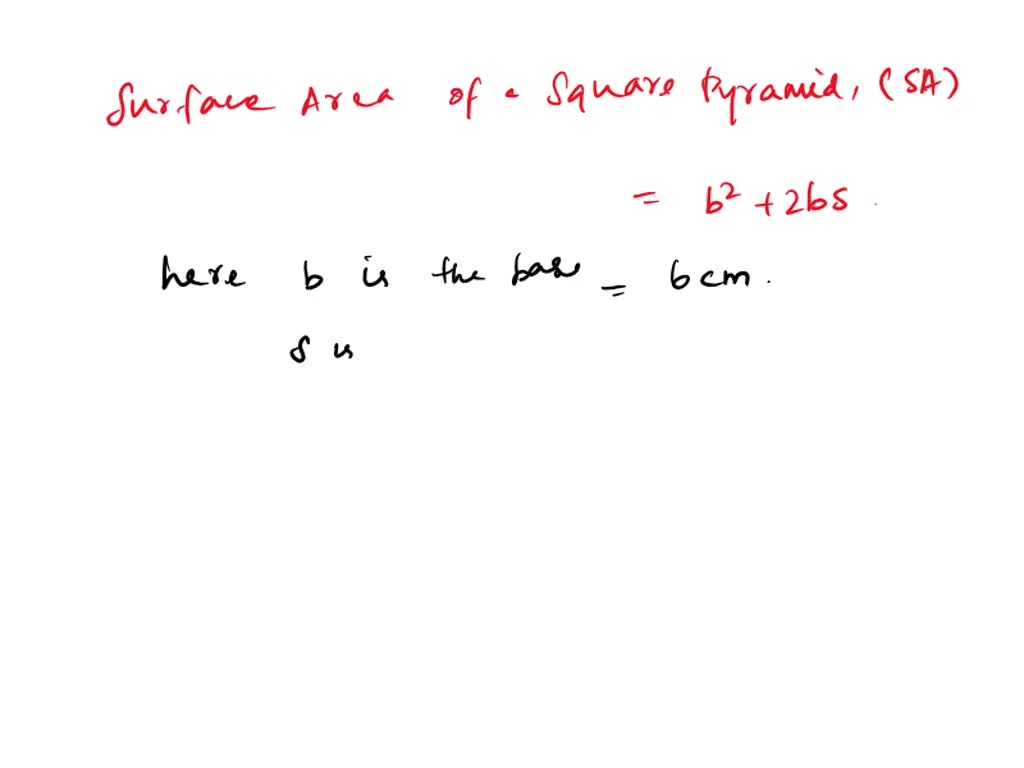 Surface Area of a Square Pyramid, (SA)
= b² + 2bs
here b is the base = 6 cm.
s is